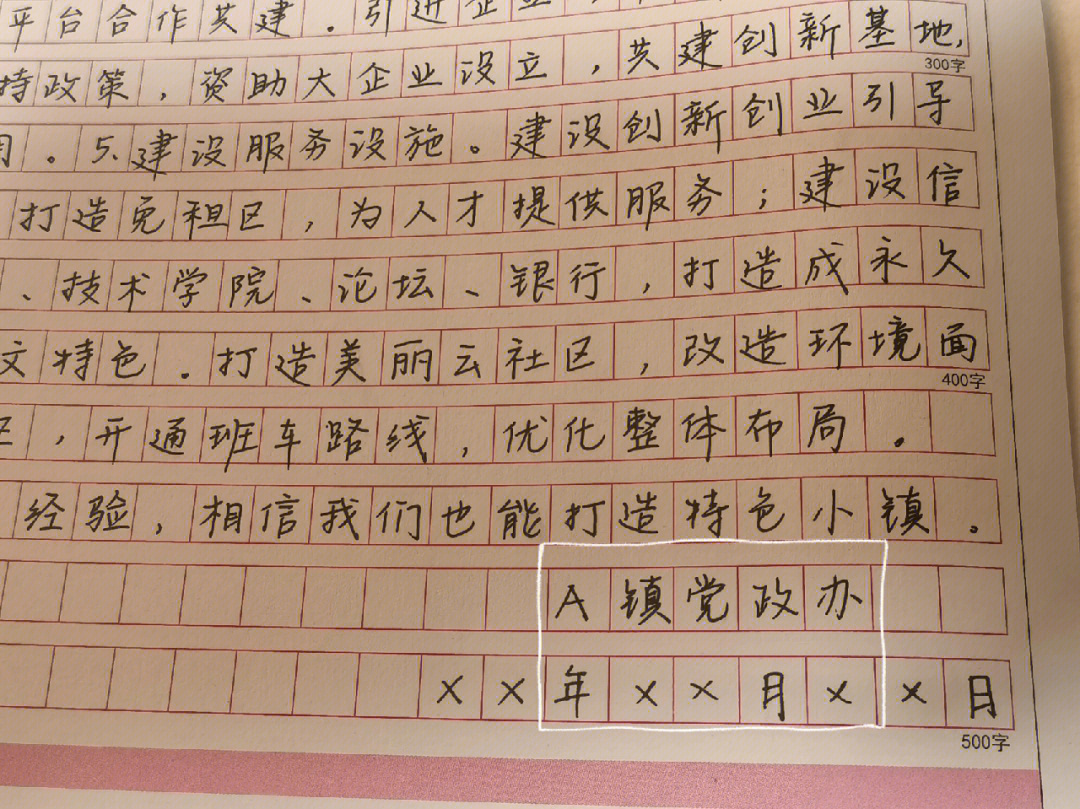 平台合作共建.引进企业
300字
持政策,资助大企业设立,共建创新基地,
。5、建设服务设施。建设创新创业引导
打造免租区,为人才提供服务;建设信
、技术学院、论坛、银行,打造成永久
文特色.打造美丽云社区,改造环境面
400字
区,开通班车路线,优化整体布局。
经验,相信我们也能打造特色小镇。
A镇党政办
××年××月××日
500字